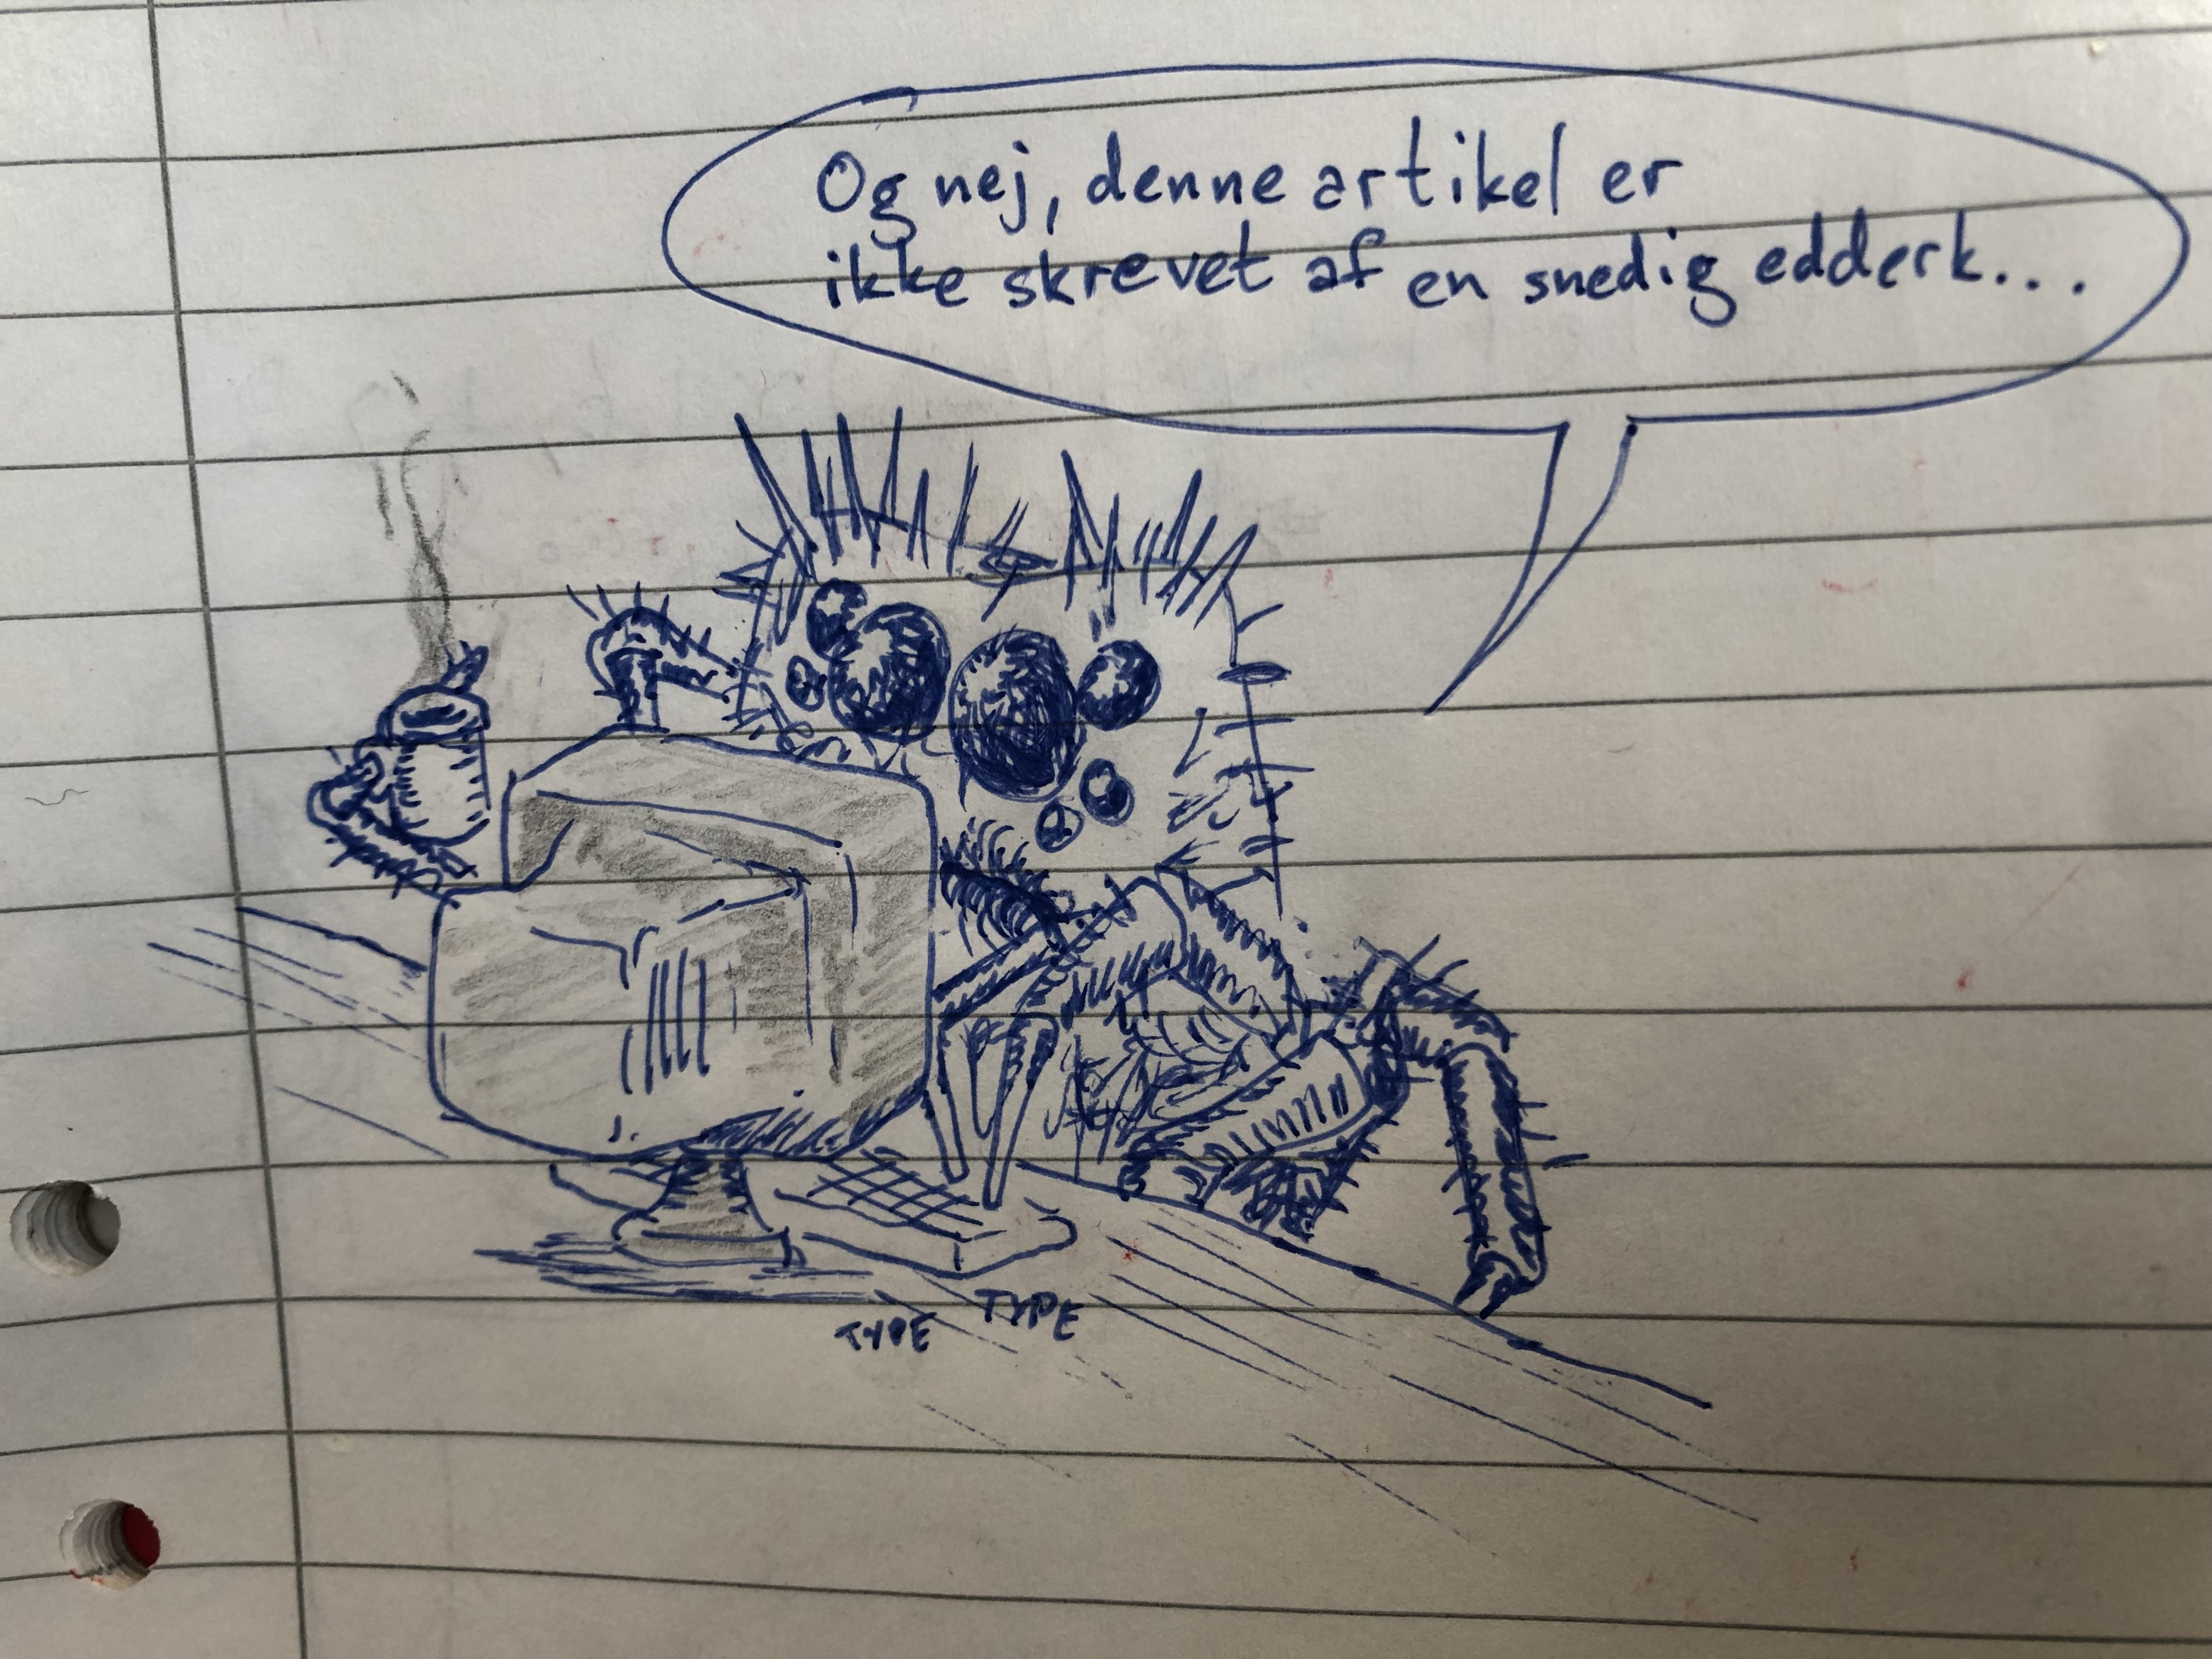 Og nej, denne artikel er
ikke skrevet af en snedig edderk...
TYPE TYPE